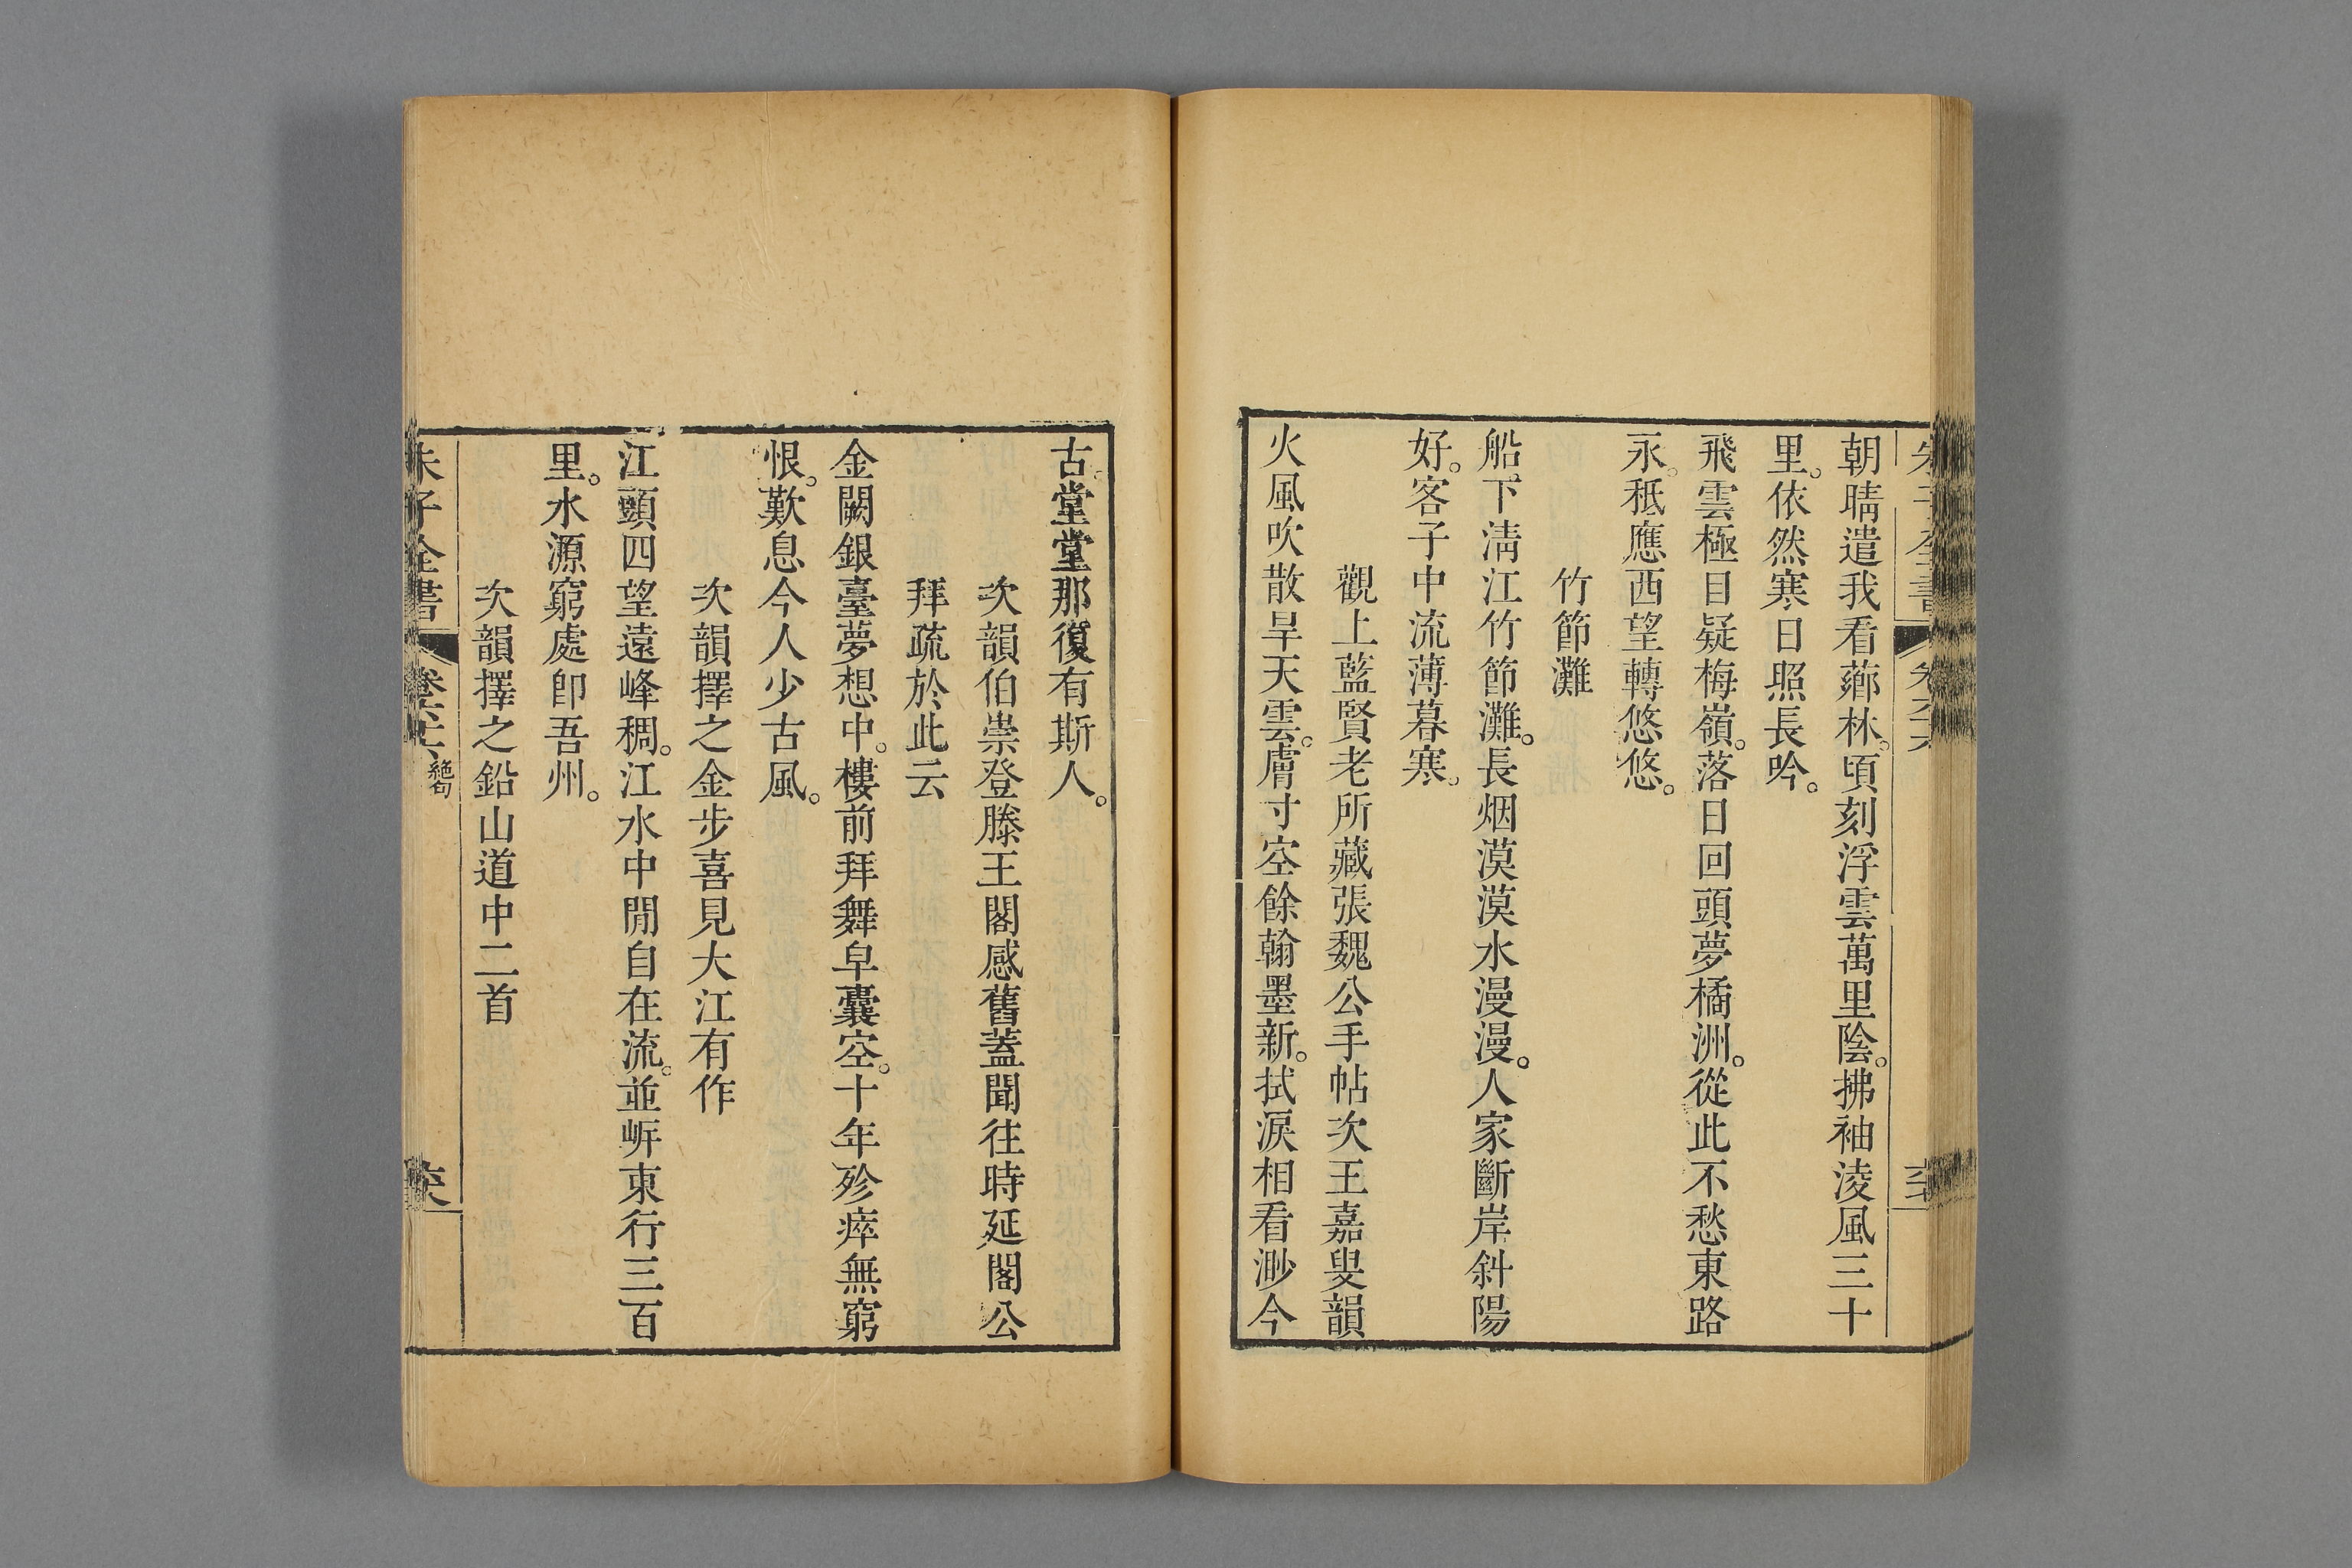 朝晴遣我看薌林。頃刻浮雲萬里陰。拂袖淩風三十
里。依然寒日照長吟。
飛雲極目疑梅嶺。落日回頭夢橘洲。從此不愁東路
永。秪應西望轉悠悠。
竹節灘
船下淸江竹節灘。長烟漠漠水漫漫。人家斷岸斜陽
好。客子中流薄暮寒。
觀上藍賢老所藏張魏公手帖次王嘉叟韻
火風吹散旱天雲。膚寸空餘翰墨新。拭淚相看渺今
古。堂堂那復有斯人。
次韻伯崇登滕王閣感舊蓋聞往時延閣公
拜疏於此云
金闕銀臺夢想中。樓前拜舞皁囊空。十年殄瘁無窮
恨。歎息今人少古風。
次韻擇之金步喜見大江有作
江頭四望遠峰稠。江水中閒自在流。並岸東行三百
里。水源窮處卽吾州。
次韻擇之鉛山道中二首
朱子全書 卷六六 絕句